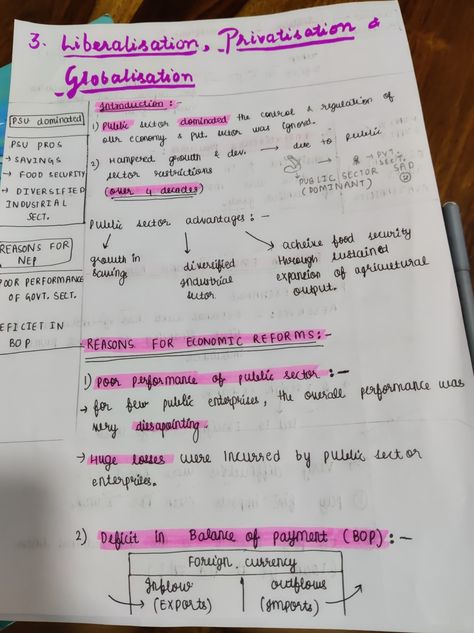 3. Liberalisation, Privatisation &
Globalisation
PSU dominated
PSU PROS
→ SAVINGS
→ FOOD SECURITY
→ DIVERSIFIED
INDUSTRIAL
SECT.
REASONS FOR
NEP
POOR PERFORMANCE
OF GOVT. SECT.
DEFICIET IN
BOP
Introduction :-
1) Public sector dominated the control & regulation of
our economy & pvt. sector was ignored.
2) Hampered growth & dev. → due to public
sector restrictions
(over 4 decades)
→ PVT. SECT.
SAD
PUBLIC SECTOR
(DOMINANT)
Public sector advantages :-
growth in
saving
diversified
industrial
sector.
acheive food security
through sustained
expansion of agricultural
output.
REASONS FOR ECONOMIC REFORMS:-
1) Poor performance of public sector :-
→ for few public enterprises, the overall performance was
very dissapointing.
→ Huge losses were incurred by public sector
enterprises.
2) Deficit in Balance of payment (BOP) :-
Foreign currency
Inflow
(Exports)
outflows
(Imports)